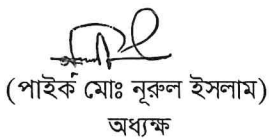 (পাইক মোঃ নূরুল ইসলাম)
অধ্যক্ষ